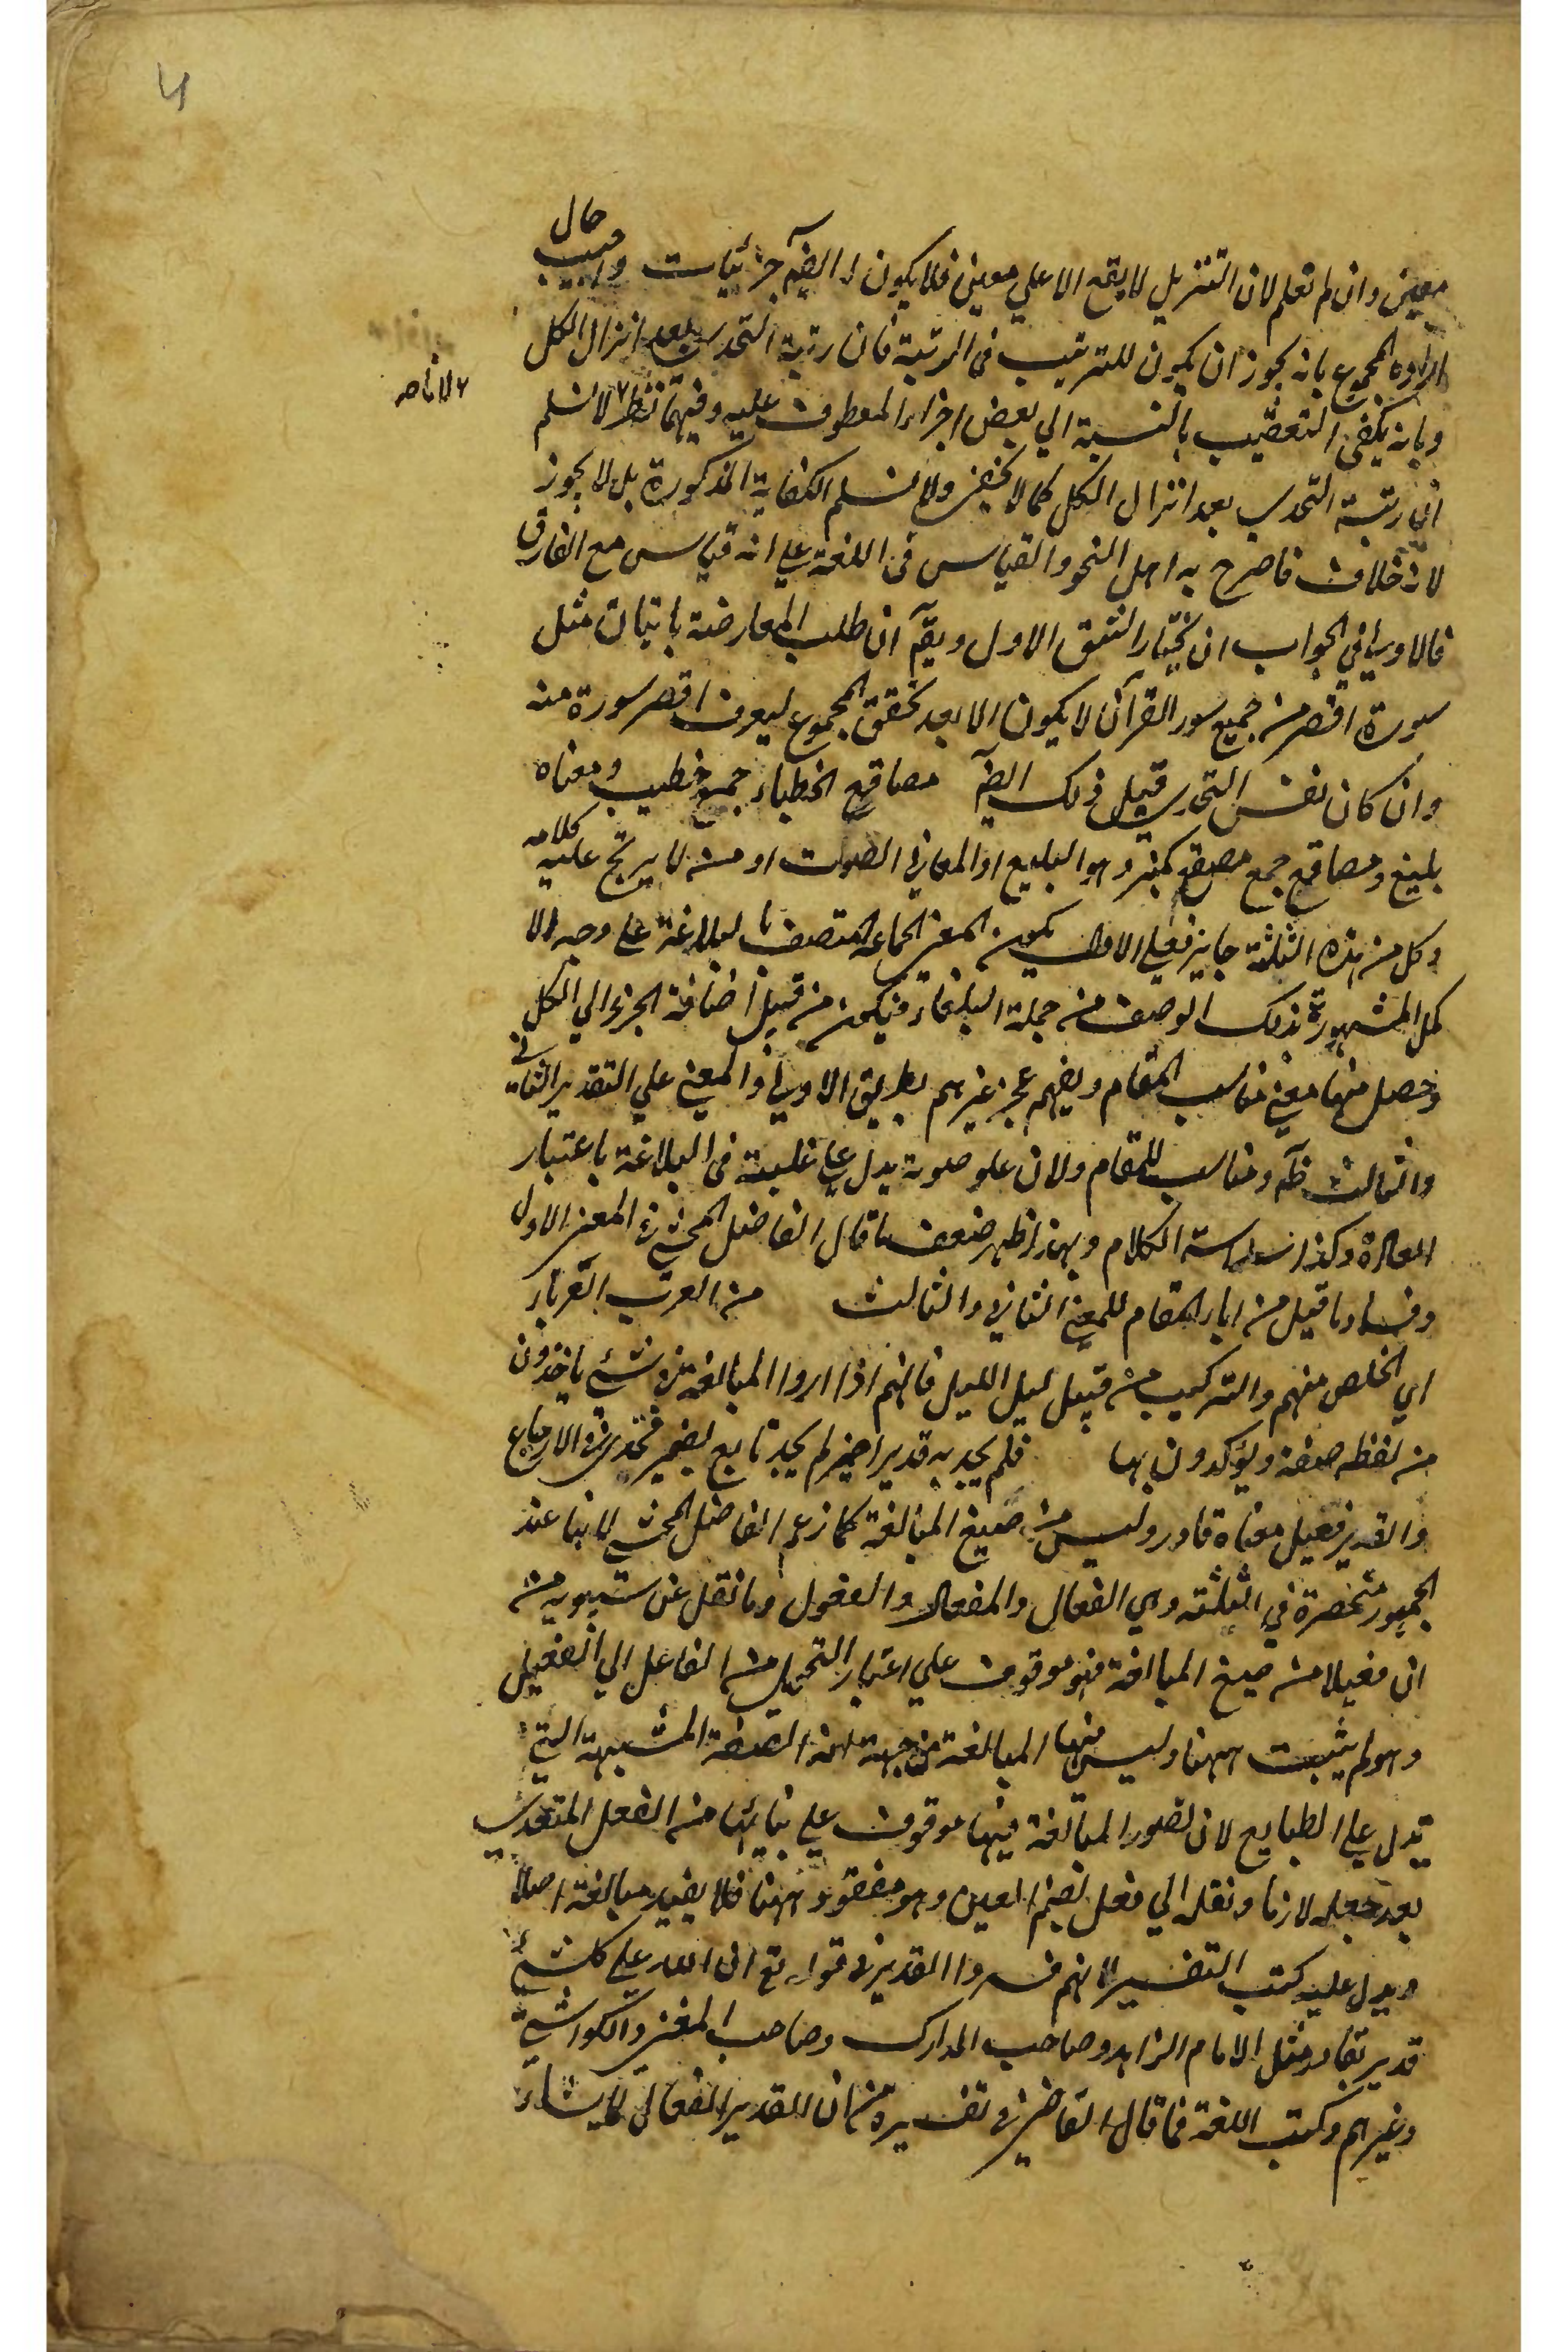 4
معين وان لم تعلم لان التنزيل لا يقع الا علي معين فلا يكون له ايضاً جزئيات واجيب حال
ارادة المجموع بانه يجوز ان يكون للترتيب في المرتبة فان رتبة التحدي بعد انزال الكل
وبانه يكفي التعقيب بالنسبة الي بعض اجزاء المعطوف عليه وفيهما نظر لا نسلم
لانا صـ
ان رتبة التحدي بعد انزال الكل كما لا يخفي ولا نسلم الكفاية المذكورة بل لا يجوز
لانه خلاف ما صرح به اهل النحو والقياس في اللغة علي انه قياس مع الفارق
فالاولي في الجواب ان نختار الشق الاول ويقـ ان طلب المعارضة باتيان مثل
سورة اقصر من جميع سور القرآن لا يكون الا بعد تحقق المجموع ليعرف اقصر سورة منه
وان كان نفس التحدي قبل ذلك ايضـ مصاقع الخطباء جمع خطيب ومعناه
بليغ ومصاقع جمع مصقع كمنبر وهو البليغ او العالي الصوت او من لا يرتج عليه كلامه
وكل من هذه الثلثة جايز فعلي الاول يكون المعني الجماعة المتصف بالبلاغة علي وجه الا
كمل المشهورة بذلك الوصف من جملة البلغاء فيكون من قبيل اضافة الجزء الي الكل
وحصل منها معني مناسب المقام ويفهم عجز غيرهم بطريق الاولي والمعني علي التقدير الثاني
والثالث ظـ ومناسب للمقام ولان علو صوته يدل علي غلبته في البلاغة باعتبار
العادة وكذا سلاسة الكلام وبهذا ظهر ضعف ما قال الفاضل المحشي في المعني الاول
وفساد ما قيل من اباء المقام للمعني الثاني والثالث من العرب العرباء
اي الخلص منهم والتركيب من قبيل ليل الليل فانهم اذا ارادوا المبالغة في شئ ياخذون
من لفظه صفة ويؤكدون بها فلم يجد به قديرا ضمير لم يجد تابع لضمير فتحدي في الارجاع
والقدير فعيل معناه قادر وليس من صيغ المبالغة كما زعم الفاضل المحشي لانها عند
الجمهور منحصرة في الثلثة وهي الفعال والمفعال والفعول وما نقل عن سيبويه من
ان فعيلا من صيغ المبالغة فهو موقوف علي اعتبار التحويل من الفاعل الي الفعيل
وهو لم يثبت ههنا وليس فيها المبالغة من جهة انه الصفة المشبهة التي
تدل علي الطبايع لان تصور المبالغة فيها موقوف علي بنائها من الفعل المتعدي
بعد جعله لازما ونقله الي فعل بضم العين وهو مفقود ههنا فلا يفيد مبالغة اصلا
ويدل عليه كتب التفسير لانهم فسروا القدير في قوله تع ان الله علي كل شئ
قدير بقادر مثل الامام الزاهد وصاحب المدارك وصاحب المغني والكواشي
وغيرهم وكتب اللغة فما قال القاضي في تفسيره من ان القدير الفعال لما يشاء